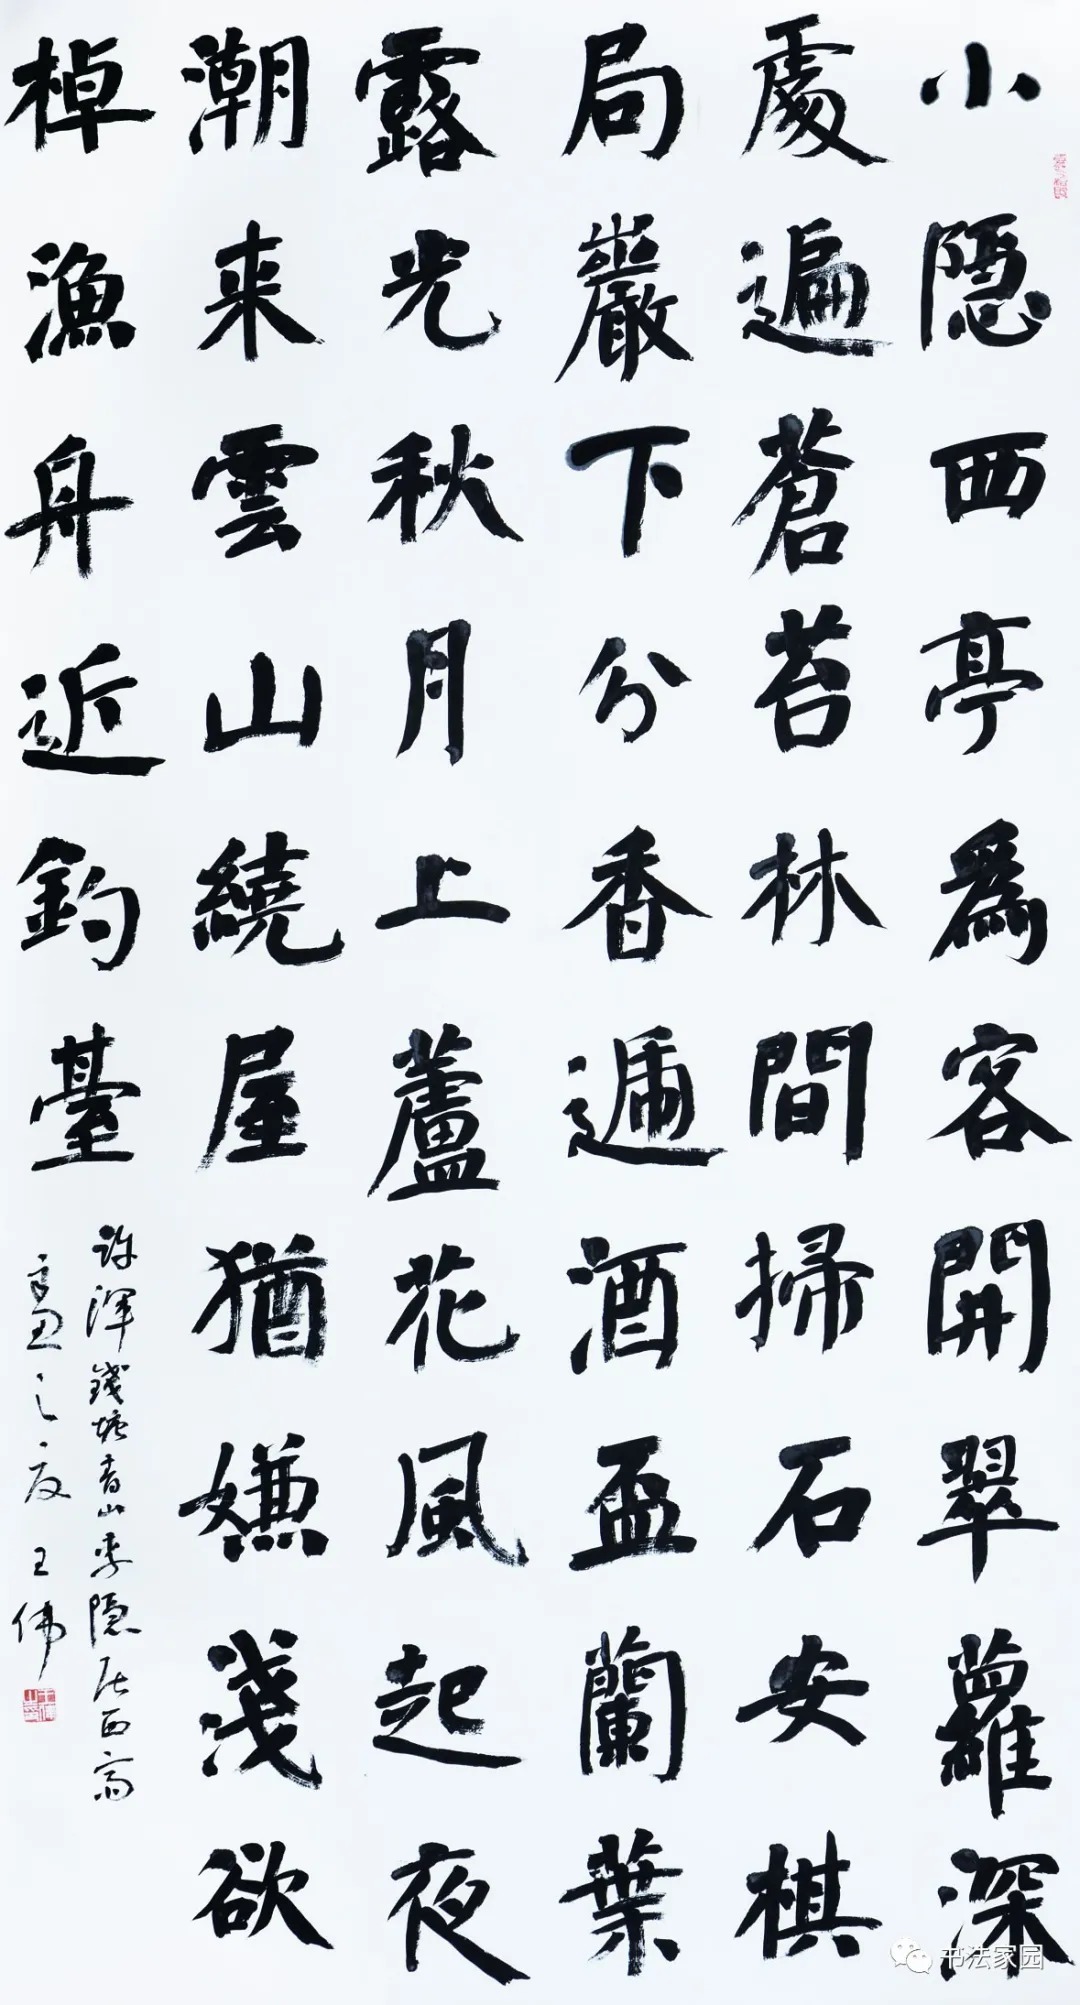 小隐西亭爲客開翠蘿深
處遍蒼苔林間掃石安棋
局巖下分香遞酒盃蘭葉
露光秋月上蘆花風起夜
潮来雲山繞屋猶嫌淺欲
棹漁舟近釣臺
許渾錢塘青山李隐居西齋
之夏王伟
书法家园